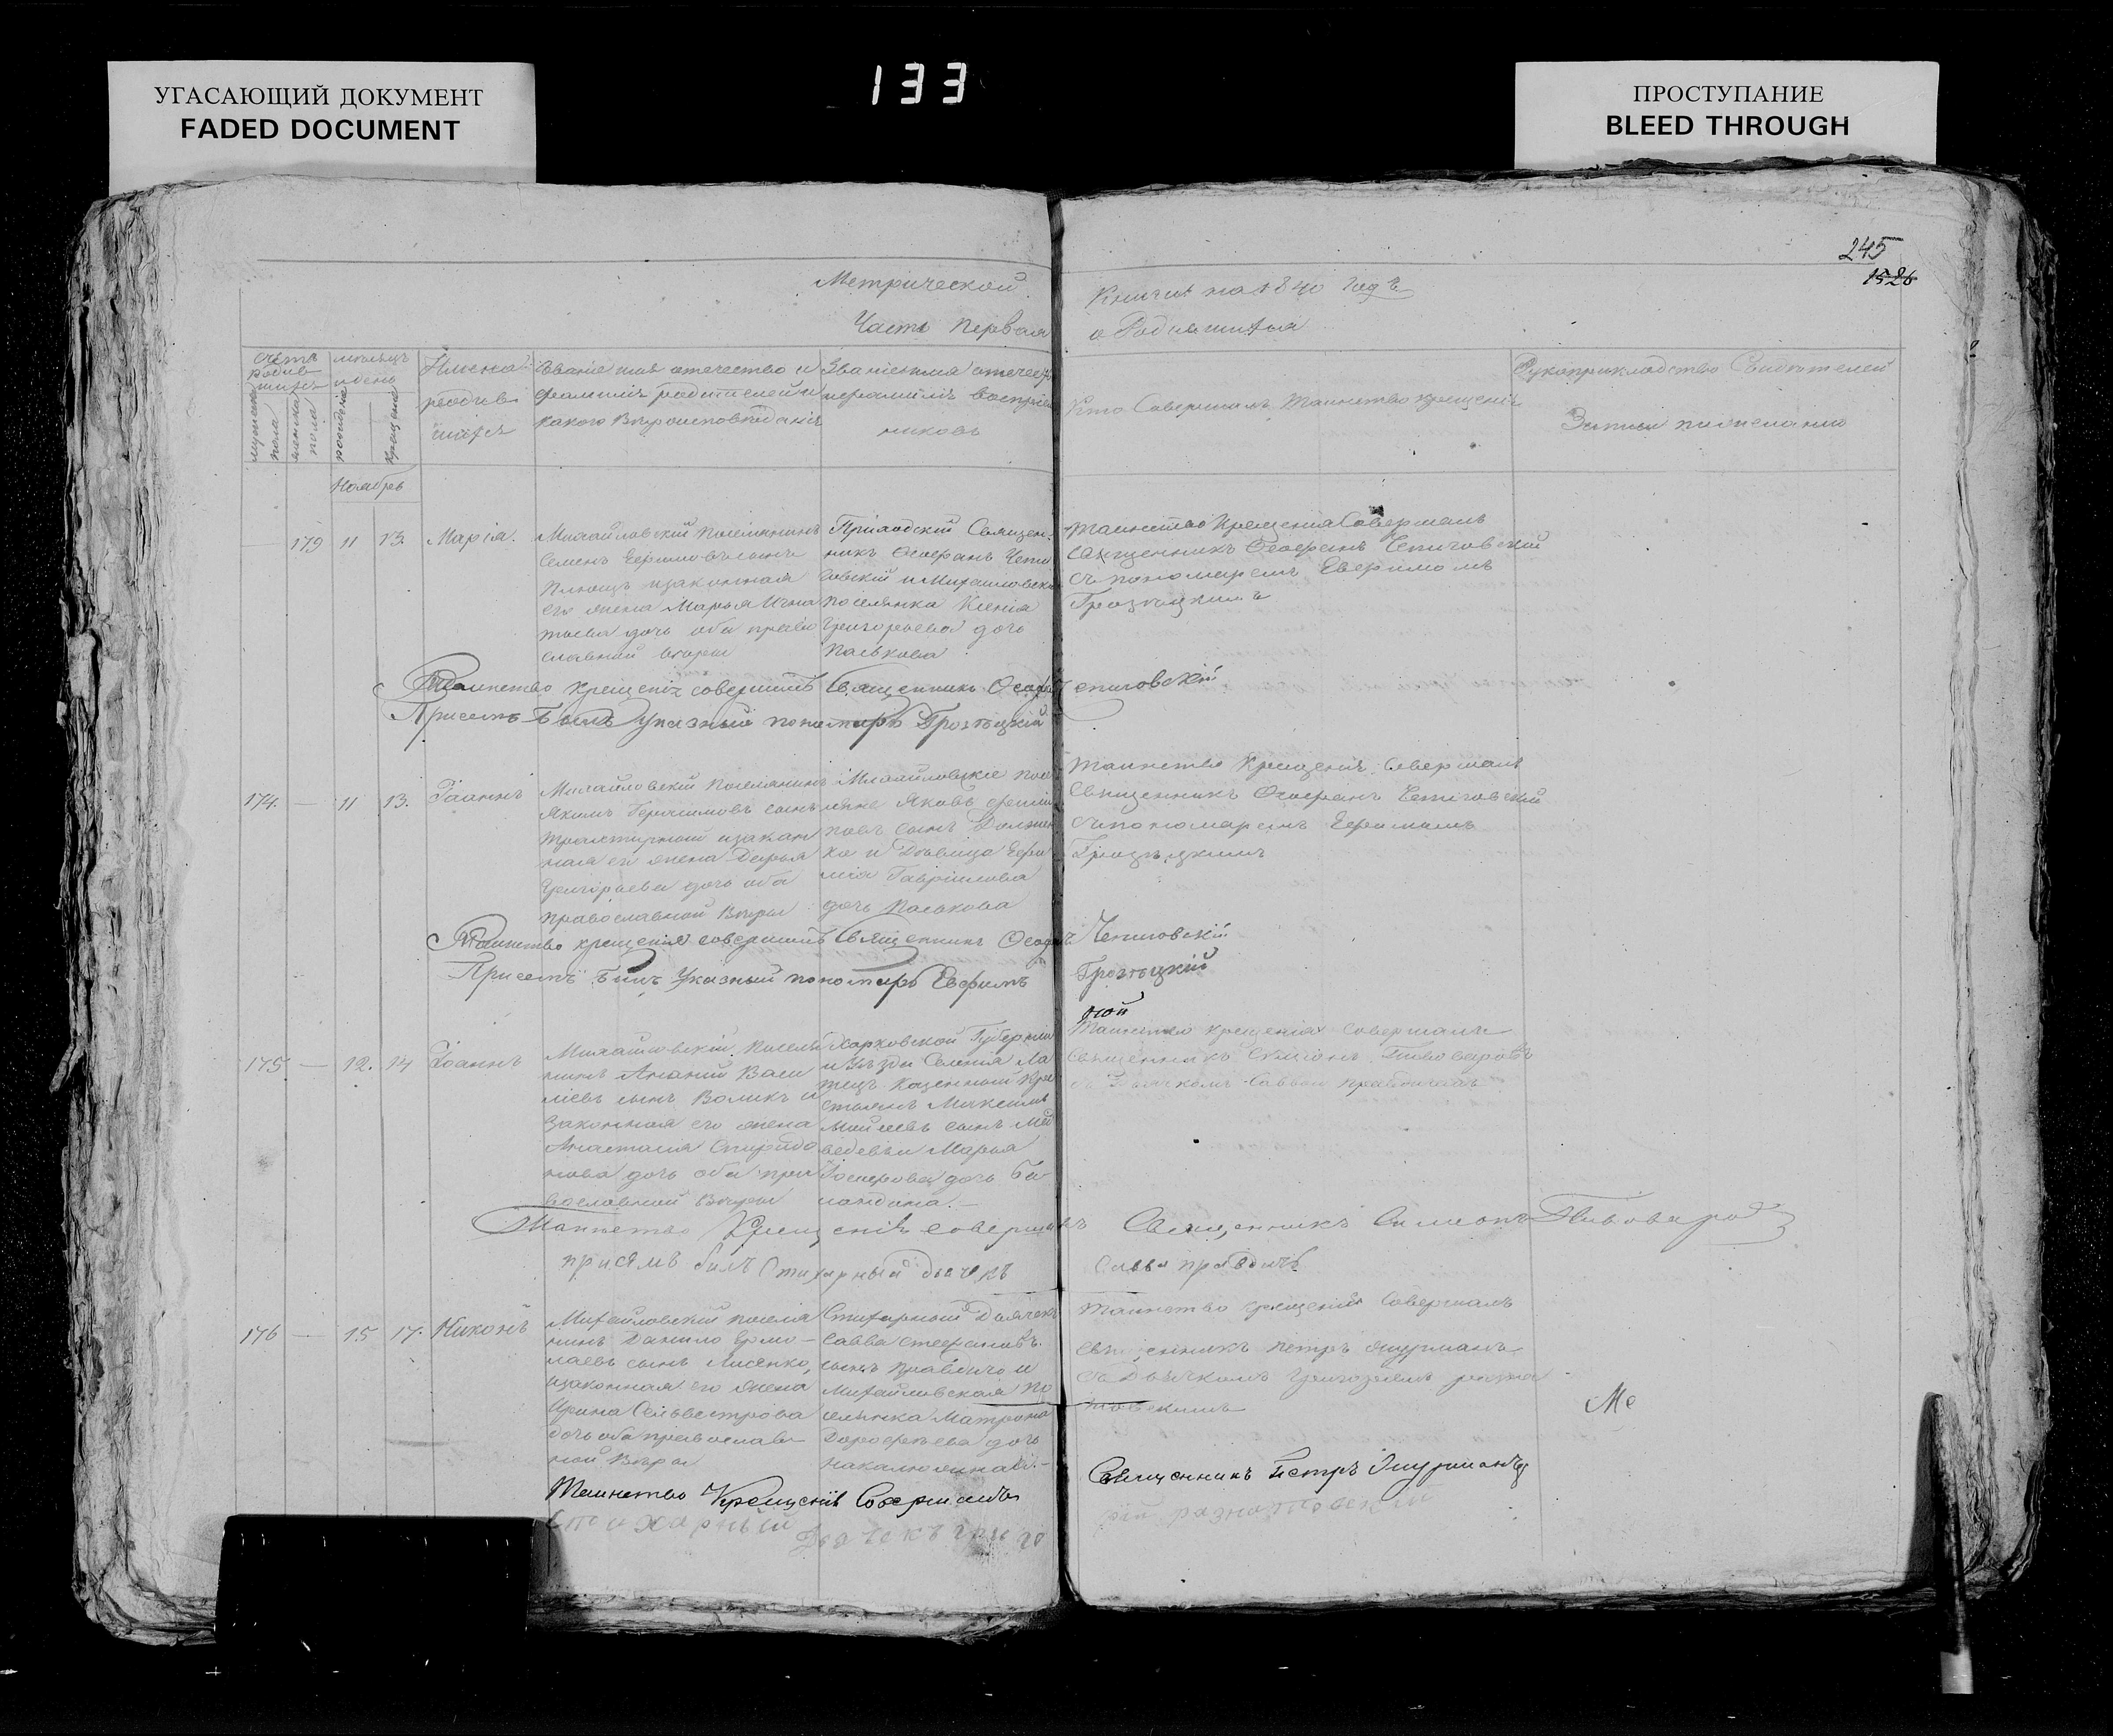 133
УГАСАЮЩИЙ ДОКУМЕНТ
FADED DOCUMENT
ПРОСТУПАНИЕ
BLEED THROUGH
245
1526
Метрической
Часть первая
Книги на 1840 годъ
о Родившихся
счетъ родившихся
мужеска пола
женска пола
месяцъ и день
рождения
крещения
Имена родившихся
Званіе имя отечество и
фамилія родителей и
какого вероисповѣданія
Званіе имя отечест
и фамилія воспріем
никовъ
Кто совершалъ таинство крещенія
Рукоприкладство Свидетелей
Записи по желанию
Ноябрь
179 11 13. Марія.
Михайловскій поселянинъ
Семенъ Ефимовъ сынъ
Плющъ изаконная
его жена Марья Игна
тьева дочь оба право
славной вѣры
Приходскій Священ
никъ Феофанъ Чепи
говскій и Михайловска
поселянка Ксенія
Григорьева дочь
Паськова
таинство Крещенія Совершалъ
Священникъ Феофанъ Чепиговскій
съ пономаремъ Евфимомъ
Грозъецкимъ
Таинство крещенія совершилъ Священникъ Феофанъ Чепиговскій
Присемъ былъ указный пономарь Грозѣцкій
174. 11 13. Іоаннъ
Михайловскій поселянинъ
Якимъ Герасимовъ сынъ
изакон
ная его жена Дарья
Григорьева дочь оба
православной Вѣры
Михайловские посе
ляне Яковъ
повъ сынъ Должен
ко и Дѣвица Ефи
мія Гавриилова
дочь Паськова
таинство Крещенія Совершалъ
Священникъ Феофанъ Чепиговскій
съ пономаремъ Ефимомъ
Грозъецкимъ
Таинство крещенія совершилъ Священникъ Феофанъ Чепиговскій
Присемъ былъ Указный пономарь Евфимъ Грозѣцкій
175 12. 14 Іоаннъ
Михайловскій поселя
нинъ Ананий Васи
лієвъ сынъ Воликъ и
законная его жена
Анастасія Спиридо
нова дочь оба пра
вославной Вѣры
Харковской Губерніи
и Уѣзда Селенія Ла
Казенный кре
стьянъ Максимъ
Моисеевъ сынъ Мед
ведевъ и Марья
Іосифова дочь Ба
ландина.
Таинство крещенія совершалъ
Священникъ Симеонъ Пивоваровъ
съ Дьячкомъ Саввой правдичемъ
Таинство Крещеніе совершалъ Священникъ Симеонъ Пивоваров
присемъ былъ Стихарный дьячекъ Савва правдичъ
176 15 17. Никонъ
Михайловский поселя
нинъ Данило Ермо
лаевъ сынъ Лисенко,
изаконная его жена
Ирина Сельвестрова
дочь оба православ
ной Вѣры
Стихарный Дьячекъ
Савва Стефановъ
сынъ правдичъ и
Михайловская по
селянка Матрона
Дорофѣева дочь
таинство крещенія Совершалъ
священникъ Петръ Шурманъ
съ Дьячкомъ Григориемъ разна
товскимъ
Ме
Таинство Крещеніе Совершалъ Священникъ Петръ Шурманъ
Стихарный Дьячекъ григорій разнатовский